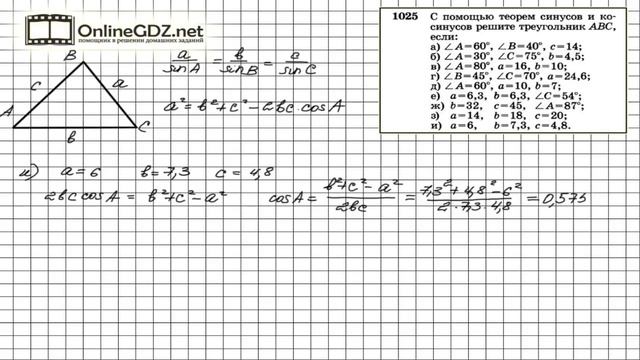 OnlineGDZ.net
помощник в решении домашних заданий
1025 С помощью теорем синусов и ко-
синусов решите треугольник ABC,
если:
а) ∠A=60°, ∠B=40°, c=14;
б) ∠A=30°, ∠C=75°, b=4,5;
в) ∠A=80°, a=16, b=10;
г) ∠B=45°, ∠C=70°, a=24,6;
д) ∠A=60°, a=10, b=7;
е) a=6,3, b=6,3, ∠C=54°;
ж) b=32, c=45, ∠A=87°;
з) a=14, b=18, c=20;
и) a=6, b=7,3, c=4,8.
B
c
a
A
b
C
a/sinA = b/sinB = c/sinC
a² = b² + c² - 2bc·cosA
и) a=6 b=7,3 c=4,8
2bc cosA = b²+c²-a² cosA = (b²+c²-a²)/2bc = (7,3²+4,8²-6²)/(2·7,3·4,8) = 0,575